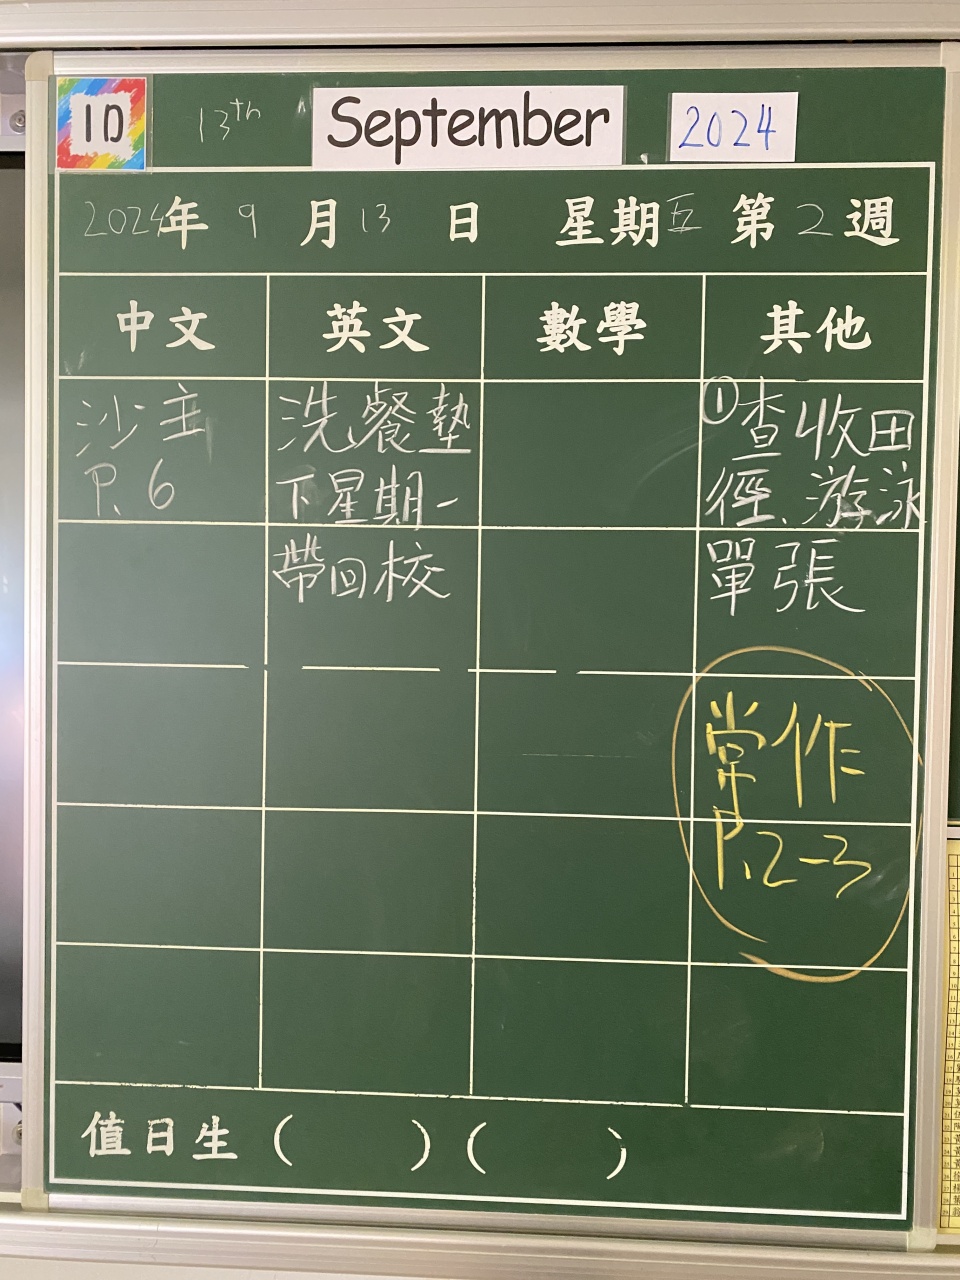 1D
13th September, 2024
2024年9月13日 星期五 第2週
中文 英文 數學 其他
沙主
P.6
洗餐墊
下星期一
帶回校
①查收田
徑、游泳
單張
常作
P.2-3
值日生( )( )